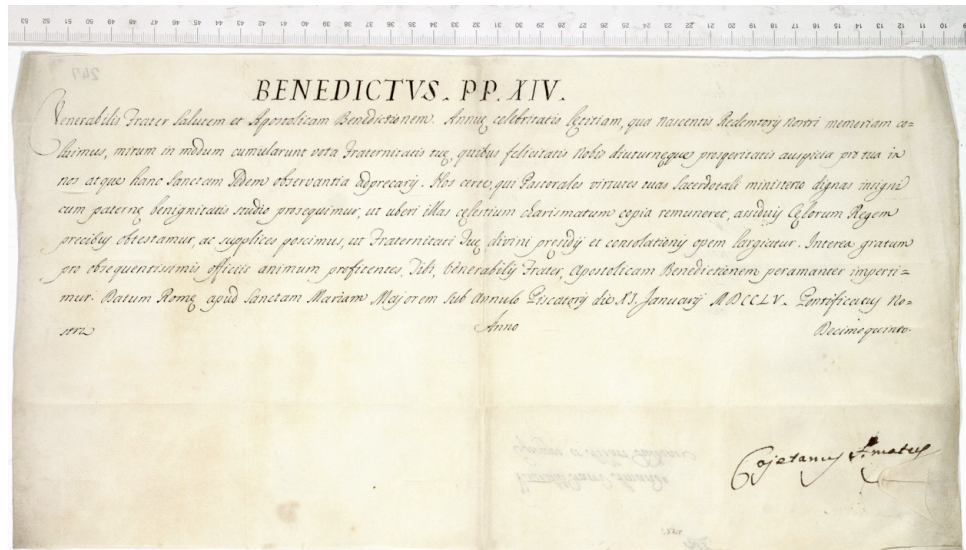 53 52 51 50 49 48 47 46 45 44 43 42 41 40 39 38 37 36 35 34 33 32 31 30 29 28 27 26 25 24 23 22 21 20 19 18 17 16 15 14 13 12 11 10 9
247
BENEDICTVS. PP. XIV.
Venerabilis Frater Salutem et Apostolicam Benedictionem. Annuę celebritatis lętitiam, qua Nascentis Redemptoris Nostri memoriam co=
luimus, mirum in modum cumularunt vota Fraternitatis tuę, quibus felicitatis Nobis diuturnęque prosperitatis auspicia pro tua in
nos atque hanc Sanctam Sedem observantia adprecaris. Nos certe, qui Pastorales virtutes tuas Sacerdotali ministerio dignas insigni
cum paternę benignitatis studio prosequimur, ut uberi illas cęlestium charismatum copia remuneret, assiduis Cęlorum Regem
precibus obtestamur, ac supplices poscimus, ut Fraternitati Tuę divini pręsidij et consolationis opem largiatur. Interea gratum
pro obsequentissimis officiis animum profitentes, Tibi, Venerabilis Frater, Apostolicam Benedictionem peramanter imperti=
mur. Datum Romę apud Sanctam Mariam Majorem sub Annulo Piscatoris die XI. Januarij MDCCLV. Pontificatus No=
stri Anno Decimoquinto.
Cajetanus Amatus